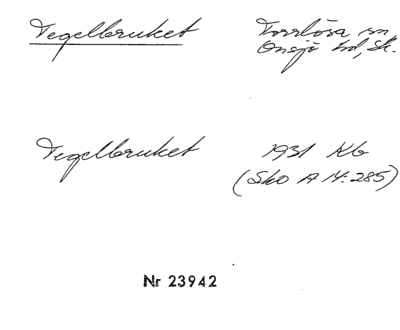 Tegelbruket
Torrlösa sn
Onsjö hd, Sk.
Tegelbruket
1931 Kb
(Sko A H:285)
Nr 23942